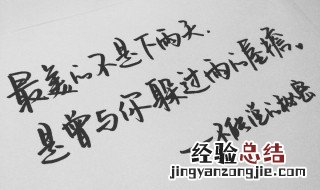 最美的不是下雨天.
是曾与你躲过雨的屋檐。
——不能说的秘密
经验总结
jingyanzongjie.com